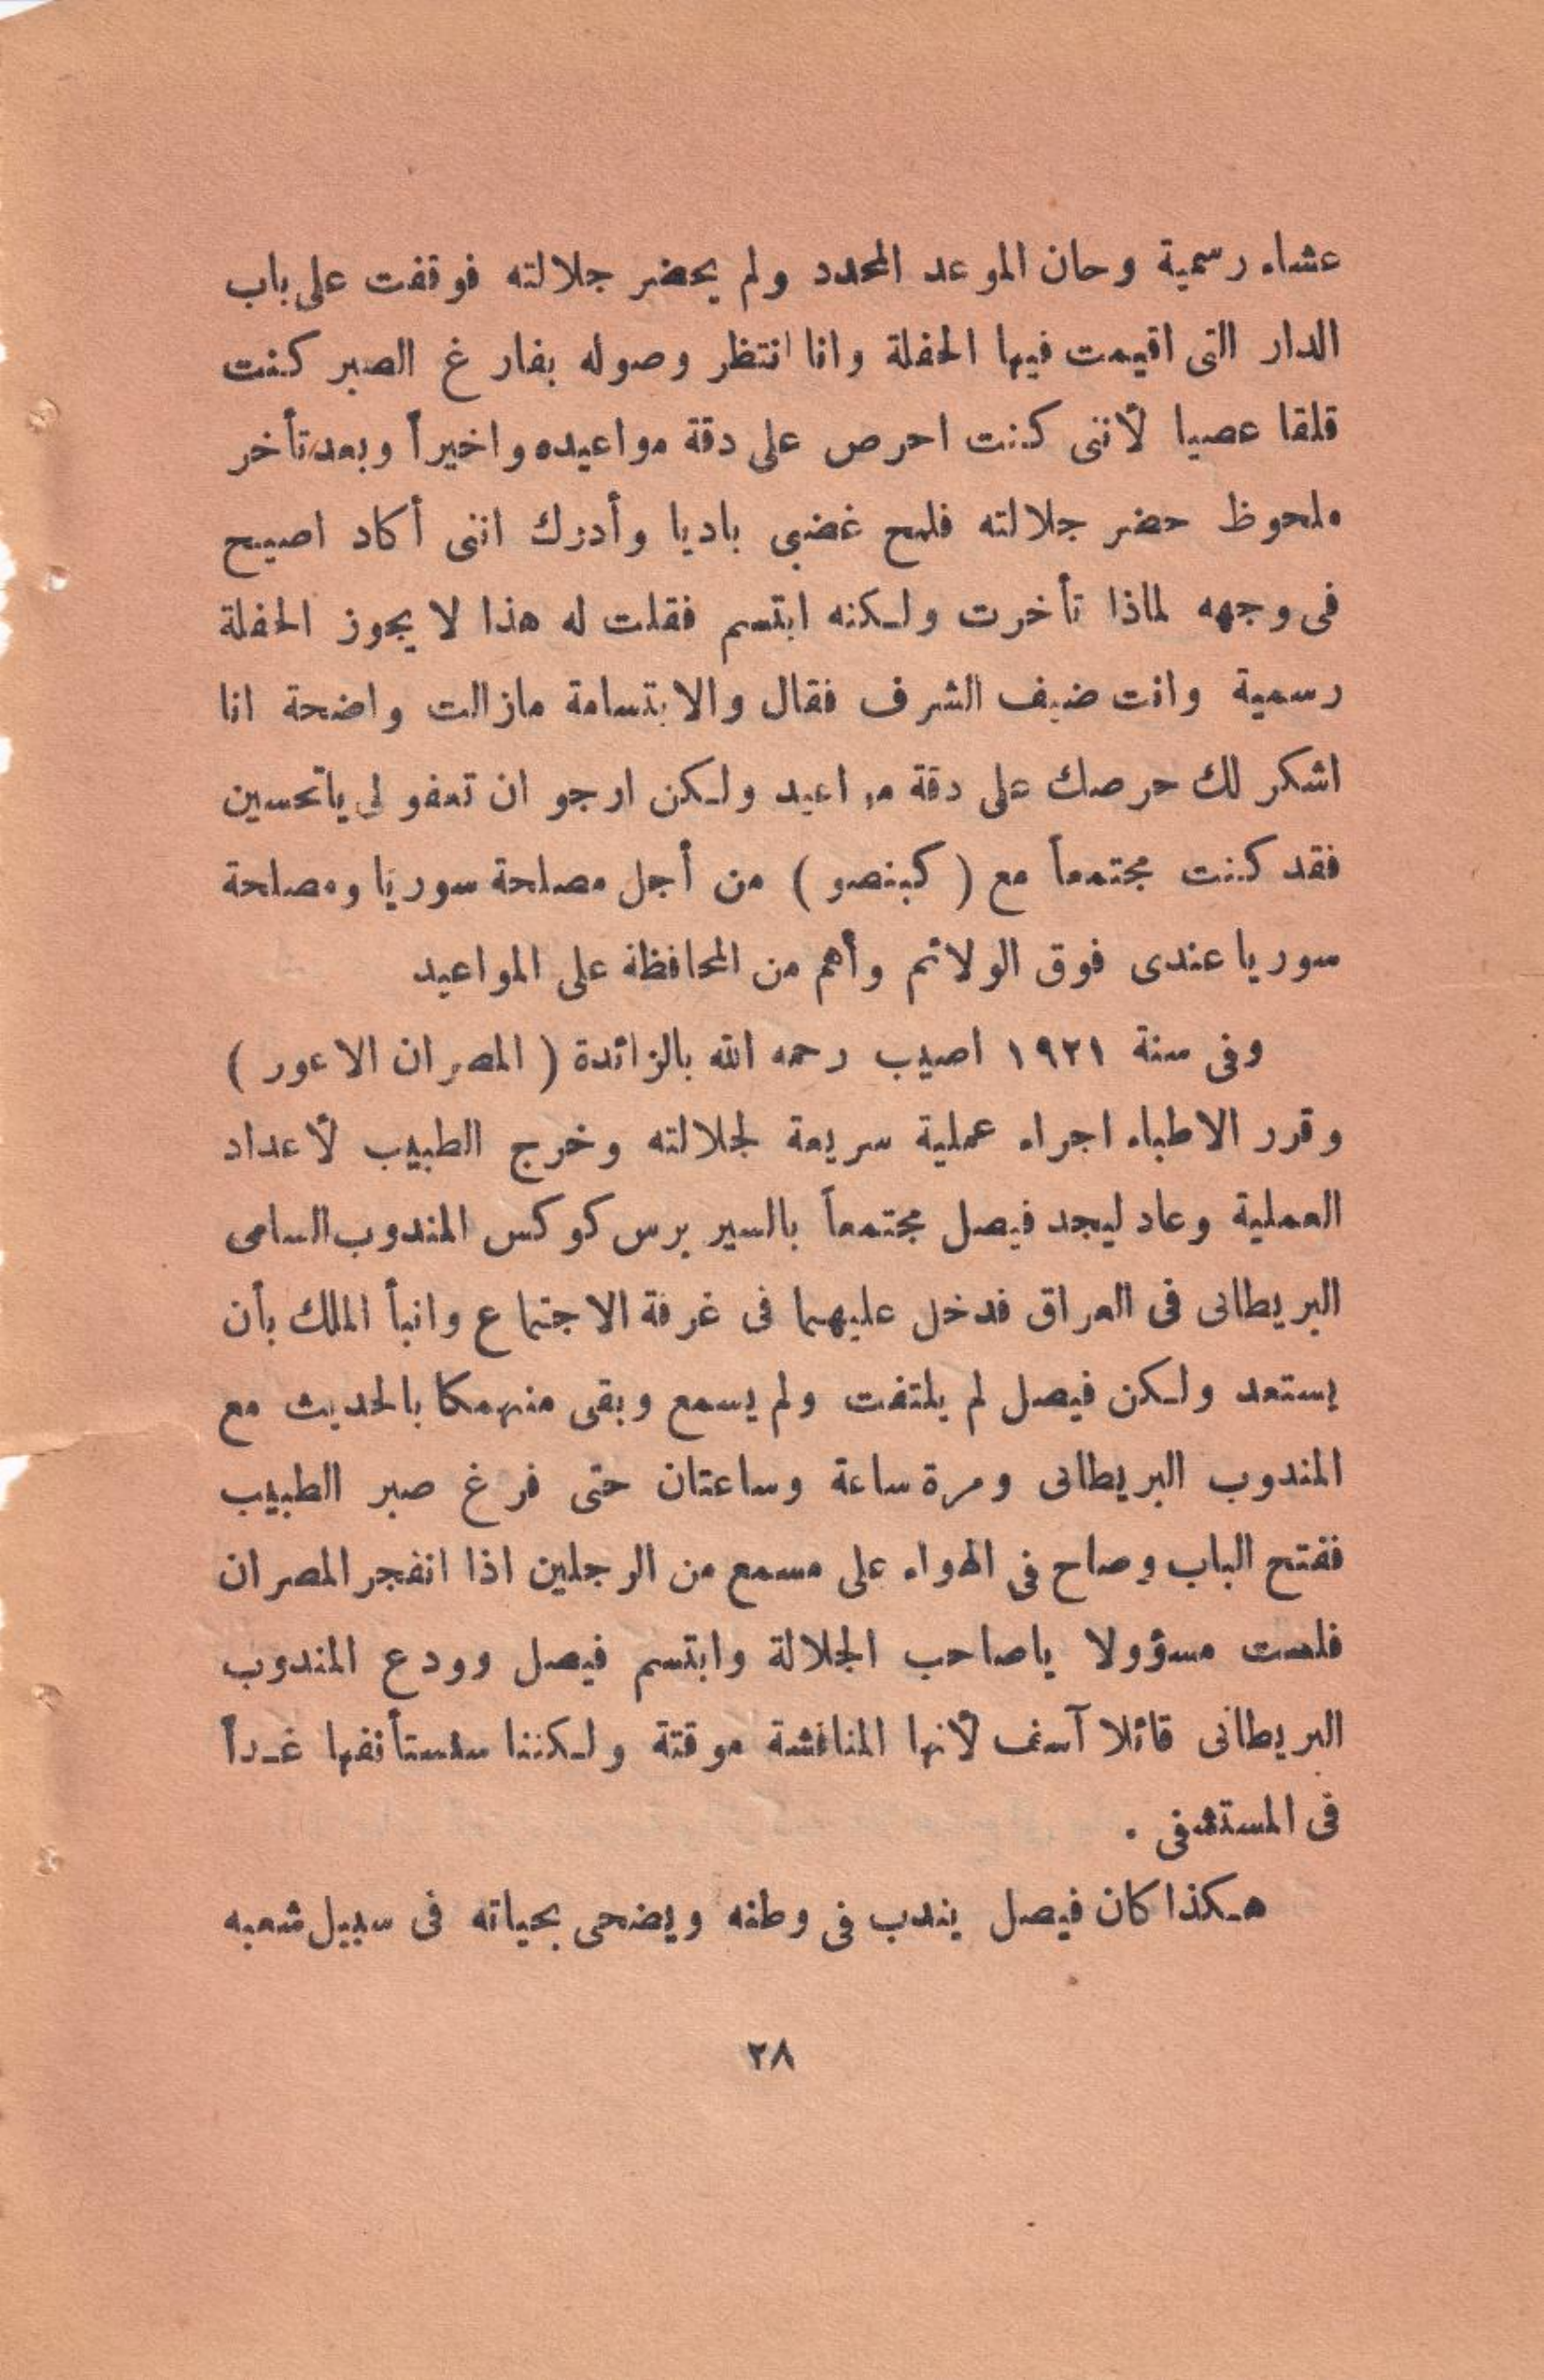 عشاء رسمية وحان الموعد المحدد ولم يحضر جلالته فوقفت على باب
الدار التى اقيمت فيها الحفلة وانا انتظر وصوله بفارغ الصبر كنت
قلقا عصبيا لأننى كنت احرص على دقة مواعيده واخيراً وبعد تأخر
ملحوظ حضر جلالته فلمح غضبى باديا وأدرك اننى أكاد اصيح
فى وجهه لماذا تأخرت ولكنه ابتسم فقلت له هذا لا يجوز الحفلة
رسمية وانت ضيف الشرف فقال والابتسامة مازالت واضحة انا
اشكر لك حرصك على دقة مواعيد ولكن ارجو ان تعفو لى ياتحسين
فقد كنت مجتمعاً مع ( كبنصو ) من أجل مصلحة سوريا ومصلحة
سوريا عندى فوق الولائم وأهم من المحافظة على المواعيد
وفى سنة ١٩٢١ اصيب رحمه الله بالزائدة ( المصران الاعور )
وقرر الاطباء اجراء عملية سريعة لجلالته وخرج الطبيب لأعداد
العملية وعاد ليجد فيصل مجتمعاً بالسير برس كوكس المندوب السامى
البريطانى فى العراق فدخل عليهما فى غرفة الاجتماع وانبأ الملك بأن
يستعد ولكن فيصل لم يلتفت ولم يسمع وبقى منهمكا بالحديث مع
المندوب البريطانى ومرة ساعة وساعتان حتى فرغ صبر الطبيب
ففتح الباب وصاح فى الهواء على مسمع من الرجلين اذا انفجر المصران
فلست مسؤولا ياصاحب الجلالة وابتسم فيصل وودع المندوب
البريطانى قائلا آسف لأنها المناقشة موقتة ولكننا سنستأنفها غداً
فى المستشفى .
هكذا كان فيصل يندب فى وطنه ويضحى بحياته فى سبيل شعبه
٢٨